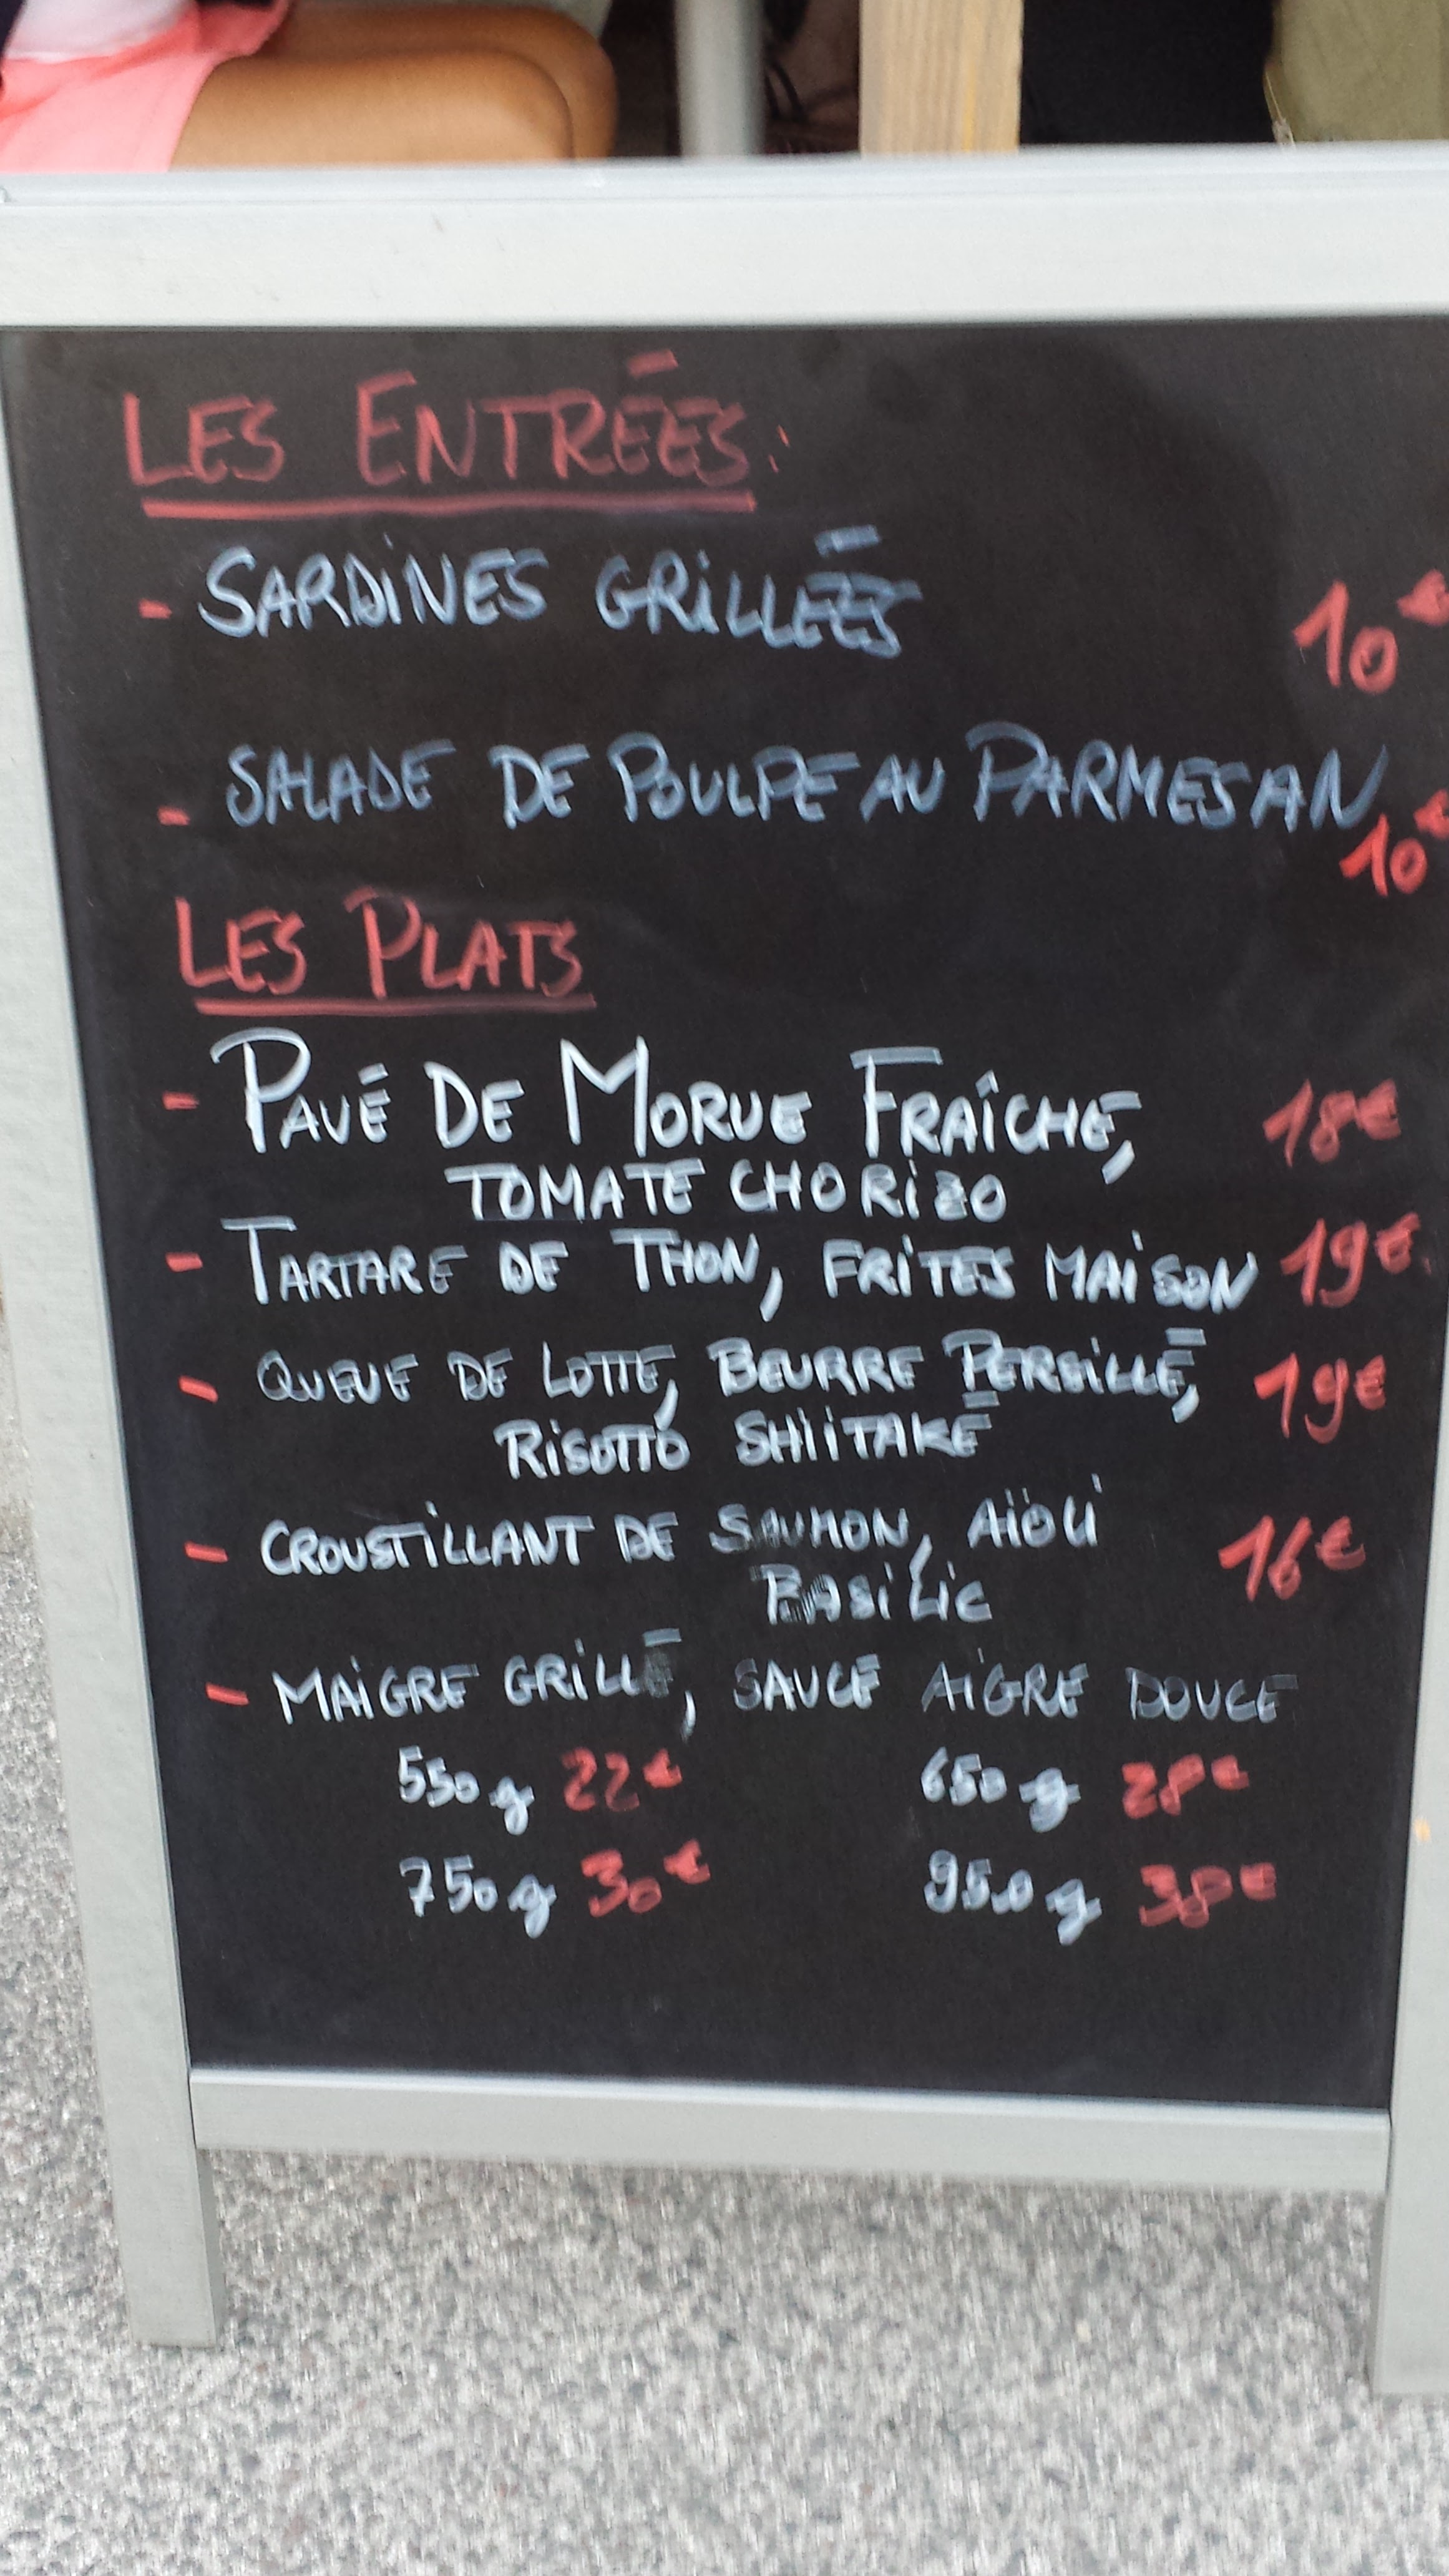 LES ENTRÉES:
- SARDINES GRILLÉES 10€
- SALADE DE POULPE AU PARMESAN
10€
LES PLATS
- PAVÉ DE MORUE FRAÎCHE, 18€
TOMATE CHORIZO
- TARTARE DE THON, FRITES MAISON 19€
- QUEUE DE LOTTE, BEURRE PERSILLÉ, 19€
RISOTTO SHIITAKÉ
- CROUSTILLANT DE SAUMON, AÏOLI 16€
BASILIC
- MAIGRE GRILLÉ, SAUCE AIGRE DOUCE
550g 22€ 650g 28€
750g 30€ 950g 38€